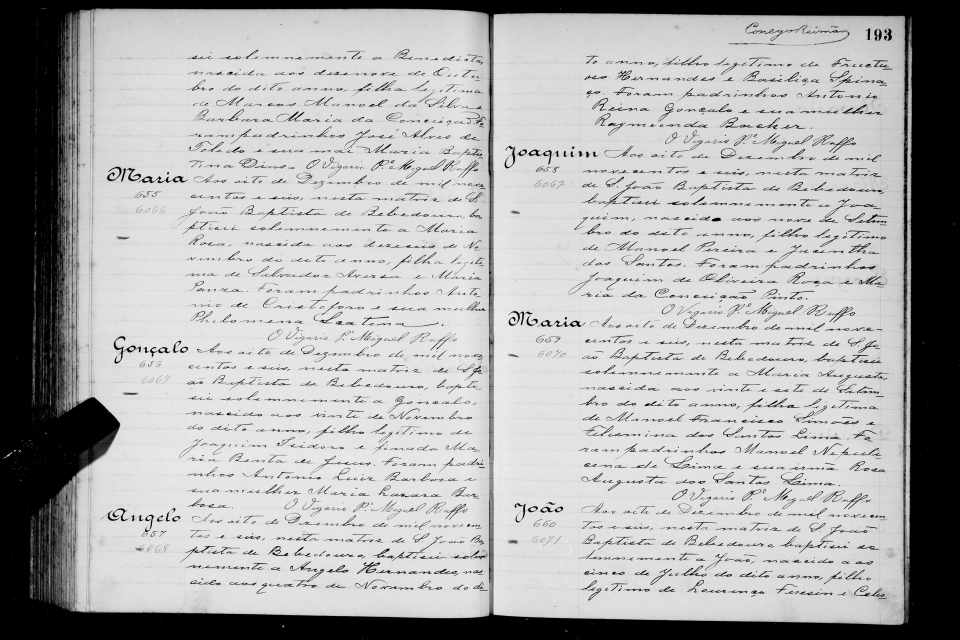 sei solemnemente a Benedicta,
nascida aos desenove de Outu-
bro do dito anno, filha legitima
de Marcos Manoel da Silva e
Barbara Maria da Conceição. Fo-
ram padrinhos José Alves de
Tolêdo e sua mãe Maria Baptis-
tina Diniz. O Vigario Pe. Miguel Raffo
Maria
655
6066
Aos oito de Dezembro de mil nove
centos e seis, nesta matriz de S.
João Baptista de Bebedouro, ba-
ptisei solemnemente a Maria
Rosa, nascida aos deseseis de No-
vembro do dito anno, filha legiti-
ma de Salvador Aversa e Maria
Foram padrinhos Anto-
nio de Cristoforo e sua mulher
Philomena
O Vigario Pe. Miguel Raffo
Gonçalo
656
6067
Aos oito de Dezembro de mil nove
centos e seis, nesta matriz de S. Jo-
ão Baptista de Bebedouro, bapti-
sei solemnemente a Gonçalo,
nascido aos vinte de Novembro
do dito anno, filho legitimo de
Joaquim Isidoro e finada Ma-
ria Benta de Jesus. Foram padri-
nhos Antonio Luiz Barbosa e
sua mulher Maria Lazara Bar-
bosa. O Vigario Pe. Miguel Raffo
Angelo
657
6068
Aos oito de Dezembro de mil novecen
tos e seis, nesta matriz de S. João Ba-
ptista de Bebedouro, baptisei solem
nemente a Angelo Hernandes, nas-
cido aos quatro de Novembro do di-
Conego Reimão
193
to anno, filho legitimo de Fructu-
oso Hernandes e Basiliça
Foram padrinhos Antonio
Reina Gonçalo e sua mulher
Raymunda
O Vigario Pe. Miguel Raffo
Joaquim
658
6069
Aos oito de Dezembro de mil
novecentos e seis, nesta matriz
de S. João Baptista de Bebedouro
baptisei solemnemente a Joa-
quim, nascido aos nove de Setem-
bro do dito anno, filho legitimo
de Manoel Pereira e Jacintha
dos Santos. Foram padrinhos
Joaquim de Oliveira Roça e Ma-
ria da Conceição Pinto.
O Vigario Pe. Miguel Raffo
Maria
659
6070
Aos oito de Dezembro de mil nove-
centos e seis, nesta matriz de S. Jo-
ão Baptista de Bebedouro, baptisei
solemnemente a Maria Augusta,
nascida aos vinte e sete de Setem-
bro do dito anno, filha legitima
de Manoel Francisco Simões e
Felesmina dos Santos Lima. Fo-
ram padrinhos Manoel Nepulu-
cena de Lima e sua irmã Rosa
Augusta dos Santos Lima.
O Vigario Pe. Miguel Raffo
João
660
6071
Aos oito de Dezembro de mil novecen
tos e seis, nesta matriz de S. João
Baptista de Bebedouro, baptisei so-
lemnemente a João, nascido aos
cinco de Julho do dito anno, filho
legitimo de Lourenço e